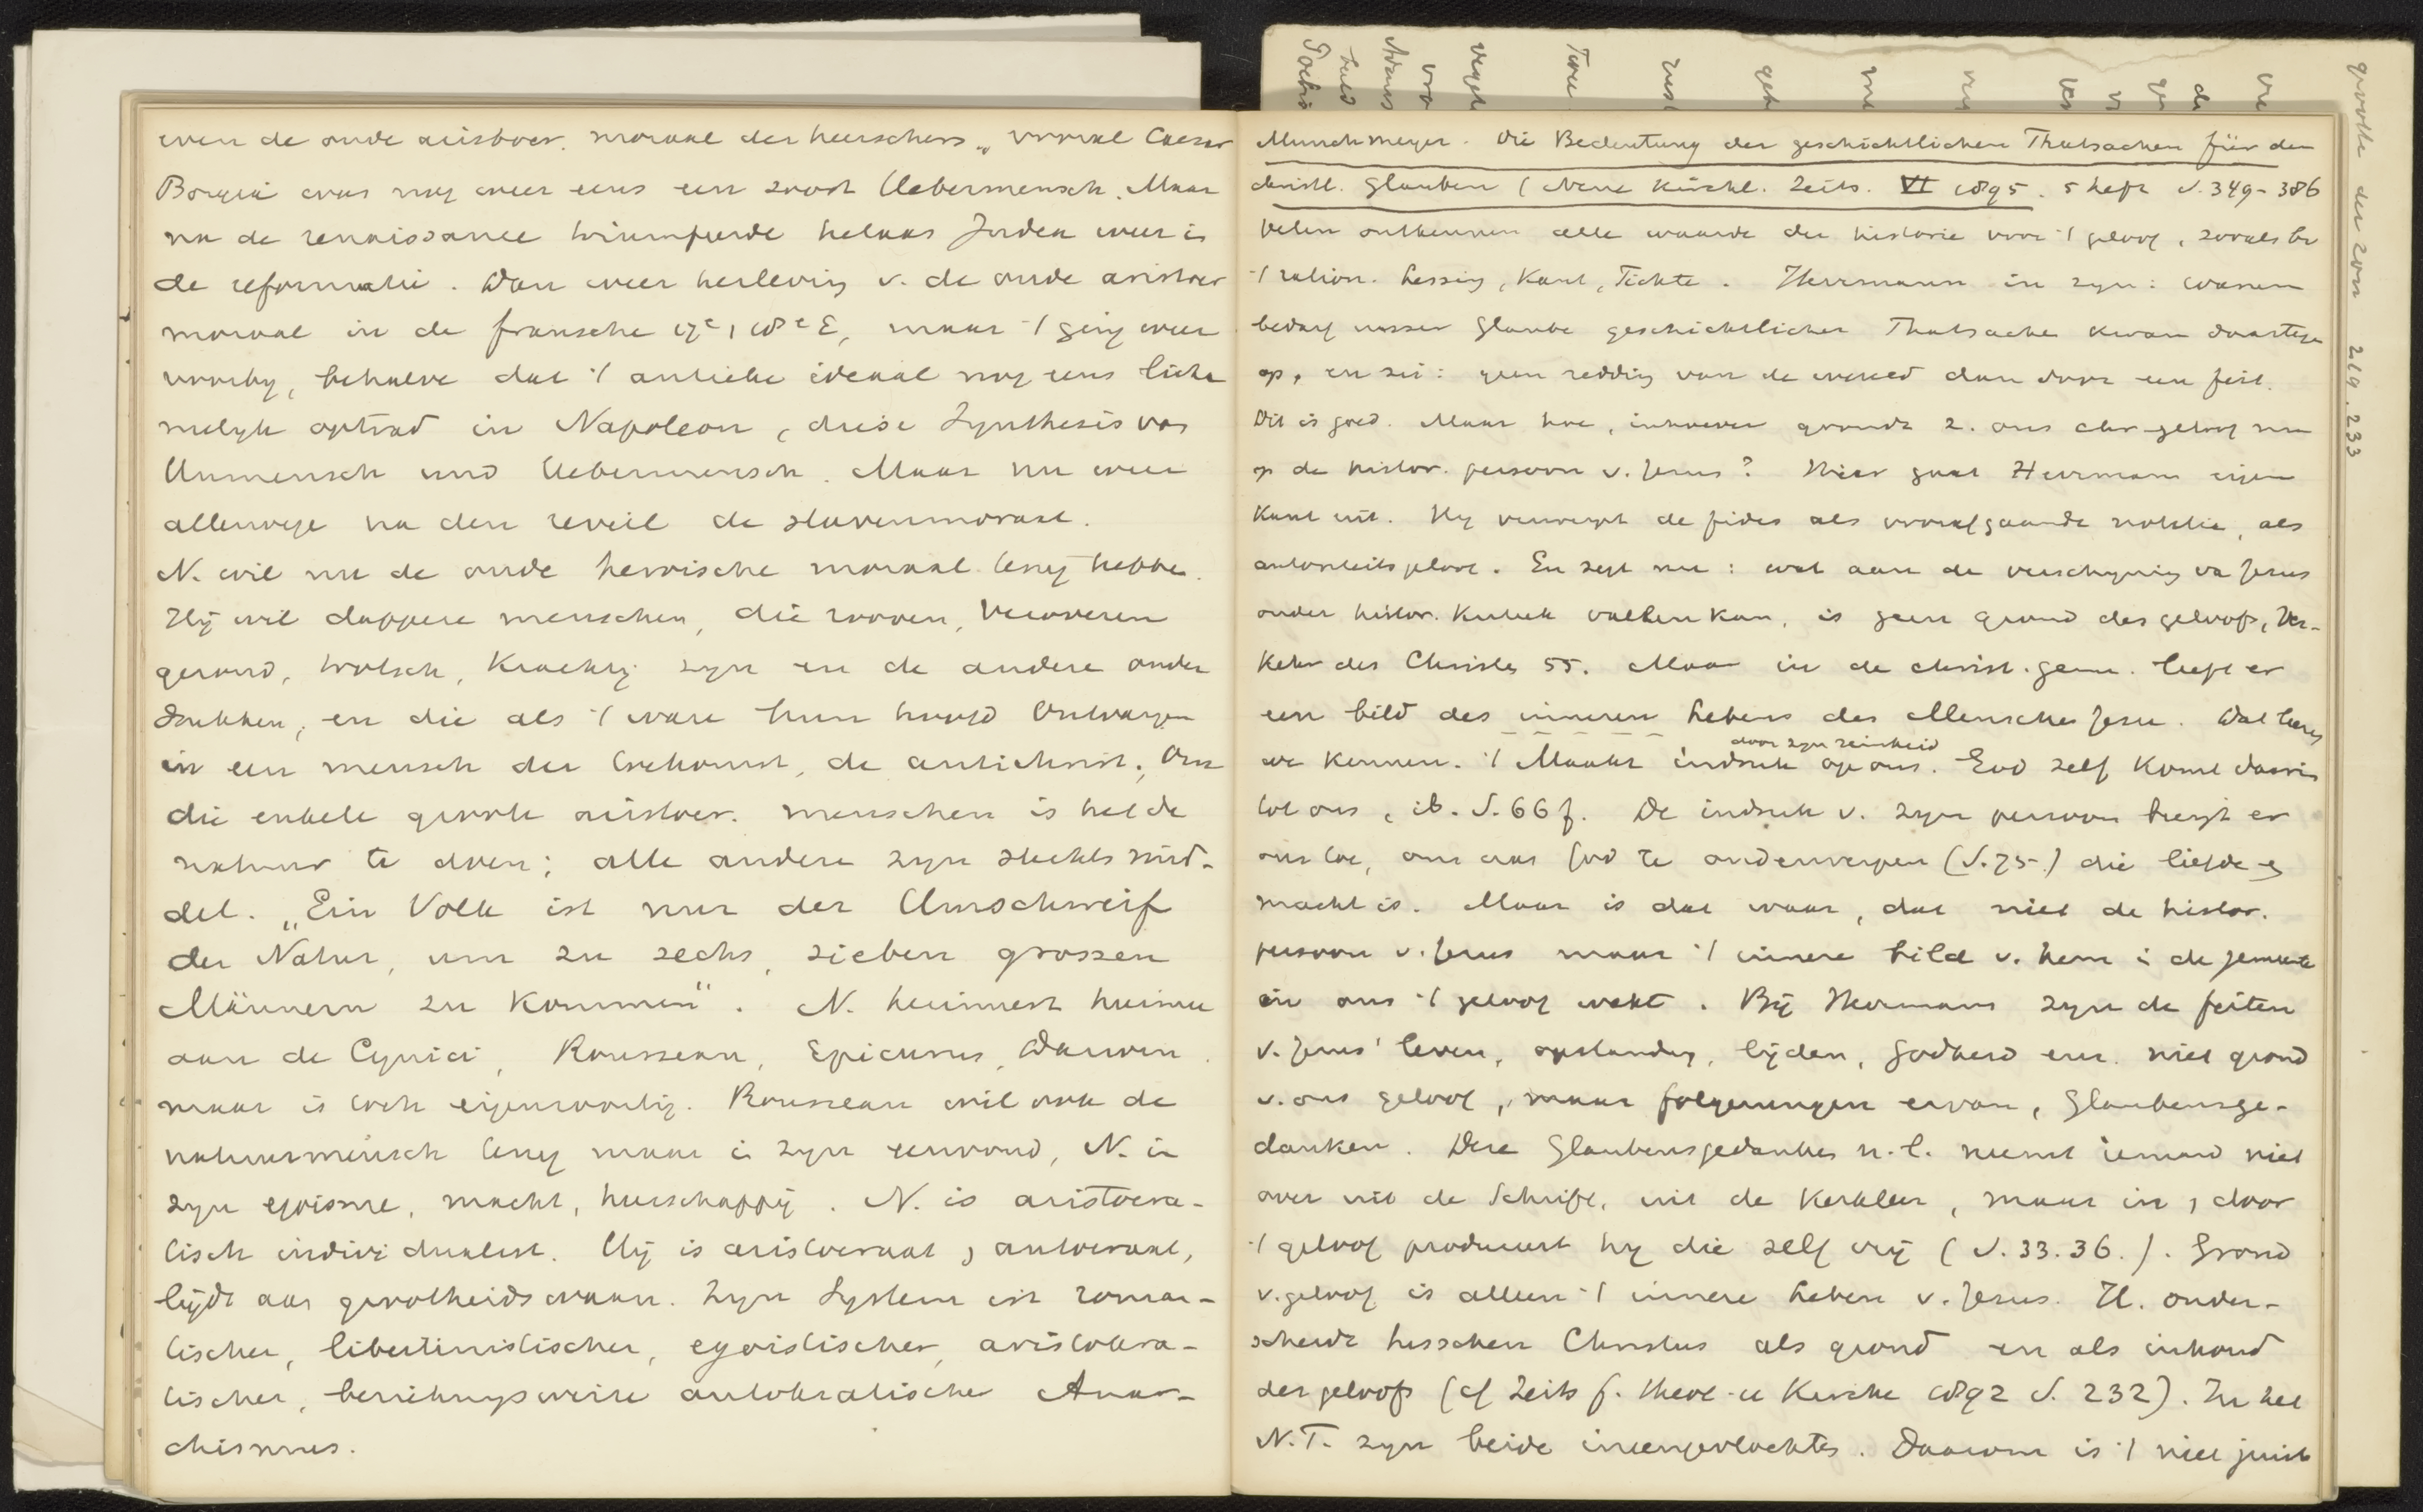 even de oude aristocr. moraal der heerschers, vooral Caesar
Borgia was nog weer eens een soort Uebermensch. Maar
na de renaissance triumfeerde helaas Judea weer in
de reformatie. Dan weer herleving v. de oude aristocr
moraal in de fransche 17e, 18e E, maar 't ging weer
voorby, behalve dat 't antieke ideaal nog eens licha
melyk optrad in Napoleon, diese Synthesis von
Unmensch und Uebermensch. Maar nu weer
allerwege na den reveil de slavenmoraal.
N. wil nu de oude heroische moraal terug hebben.
Hij wil dappere menschen, die rooven, veroveren
gezond, trotsch, krachtig zyn en de andere onder
drukken, en die als 't ware hun hoofd ontvangen
in een mensch der toekomst, de antichrist. Om
die enkele groote aristocr. menschen is het de
natuur te doen; alle andere zyn slechts mid-
del. „Ein Volk ist nur der Umschweif
der Natur, um zu sechs, sieben grossen
Männern zu kommen". N. herinnert hierin
aan de Cynici, Rousseau, Epicurus, Darwin.
maar is toch eigensoortig. Rousseau wil ook de
natuurmensch terug maar in zyn eenvoud, N. in
zyn egoisme, macht, heerschappij. N. is aristocra-
tisch individualist. Hij is aristocraat, autocraat,
lijdt aan grootheidswaan. Zyn System ist roman-
tischer, libertinistischer, egoistischer, aristokra-
tischer, beziehungsweise autokratischer Anar-
chismus.
Munchmeyer. Die Bedeutung der geschichtlichen Thatsachen für den
christl. Glauben (Neue Kirchl. Zeits. VI 1895. 5 Heft S. 349-386
Velen ontkennen alle waarde der historie voor 't geloof, zooals bv
't ration. Lessing, Kant, Fichte. Herrmann in zyn: warum
bedarf unser Glaube geschichtlicher Thatsachen kwam daartegen
op, en zei: geen redding van de wereld dan door een feit.
Dit is goed. Maar hoe, inhoever grondt z. ons chr-geloof nu
op de histor. persoon v. Jezus? Hier gaat Herrmann eigen
kant uit. Hy verwerpt de fides als voorafgaande notitie, als
autoriteitsgeloof. En zegt nu: wat aan de verschyning van Jezus
onder histor. kritiek vallen kan, is geen grond des geloofs, Ver-
kehr des Christen 55. Maar in de christ. gem. leeft er
een bild des inneren Lebens des Menschen Jesu. Dat leeren
we kennen. 't Maakt indruk op ons. God zelf komt daarin
door zyn reinheid
tot ons, ib. S. 66 f. De indruk v. zyn persoon brengt er
ons toe, om aan God te onderwerpen (S. 75-) die liefde en
macht is. Maar is dat waar, dat niet de histor.
persoon v. Jezus maar 't innere bild v. hem in de gemeente
in ons 't geloof wekt. Bij Hermann zyn de feiten
v. Jezus' leven, opstanding, lijden, Godheid enz. niet grond
v. ons geloof, maar folgerungen ervan, Glaubensge-
danken. Deze Glaubensgedanken n.l. neemt iemand niet
over uit de Schrift, uit de kerkleer, maar in, door
't geloof produceert hy die zelf vrij (S. 33. 36.). Grond
v. geloof is alleen 't innere Leben v. Jezus. H. onder-
scheidt tusschen Christus als grond en als inhoud
des geloofs (cf Zeits f. theol u Kirche 1892 S. 232). In het
N.T. zyn beide ineengevlochten. Daarom is 't niet juist
219. 233